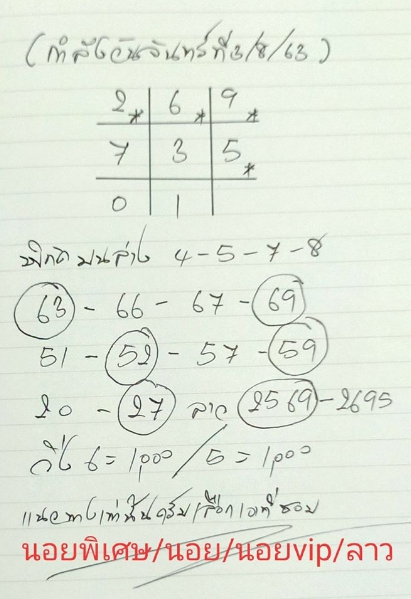 (กำลังวันจันทร์ที่3/8/63)
2* 6* 9*
7 3 5*
0 1
พิกัด บนล่าง 4-5-7-8
63 - 66 - 67 - 69
51 - 52 - 57 - 59
20 - 27 ลาว 2569 - 2695
วิ่ง 6 = 1,000 / 5 = 1,000
แนวทางเท่านั้นครับ เลือกเอาที่ชอบ
นอยพิเศษ/นอย/นอยvip/ลาว